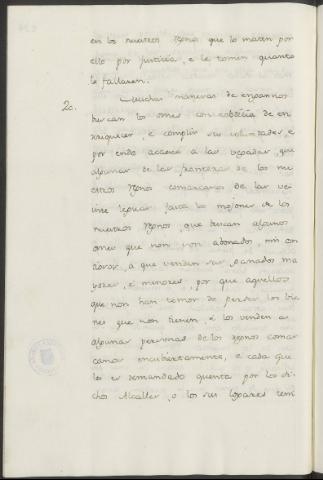 en los nuestros Regnos que lo maten por
ello por justicia, e le tomen quanto
le fallaren.
20. Muchas maneras de engannos
buscan los omes con cobdicia de en
rriquecer, e complir sus voluntades, e
por ende acaece a las vegadas, que
algunos de las fronteras de los nu
estros Regnos comarcanos de las ve
inte leguas fasta los mojones de los
nuestros Regnos, que buscan algunos
omes que non son abonados, nin con
tiosos, a que venden sus ganados ma
yores, e menores, por que aquellos
que non han temor de perder los bie
nes que non tienen, e los venden a
algunas personas de los Regnos comar
canos encubiertamente, e cada que
les es demandado quenta por los di
chos Alcalles, o los sus logares teni